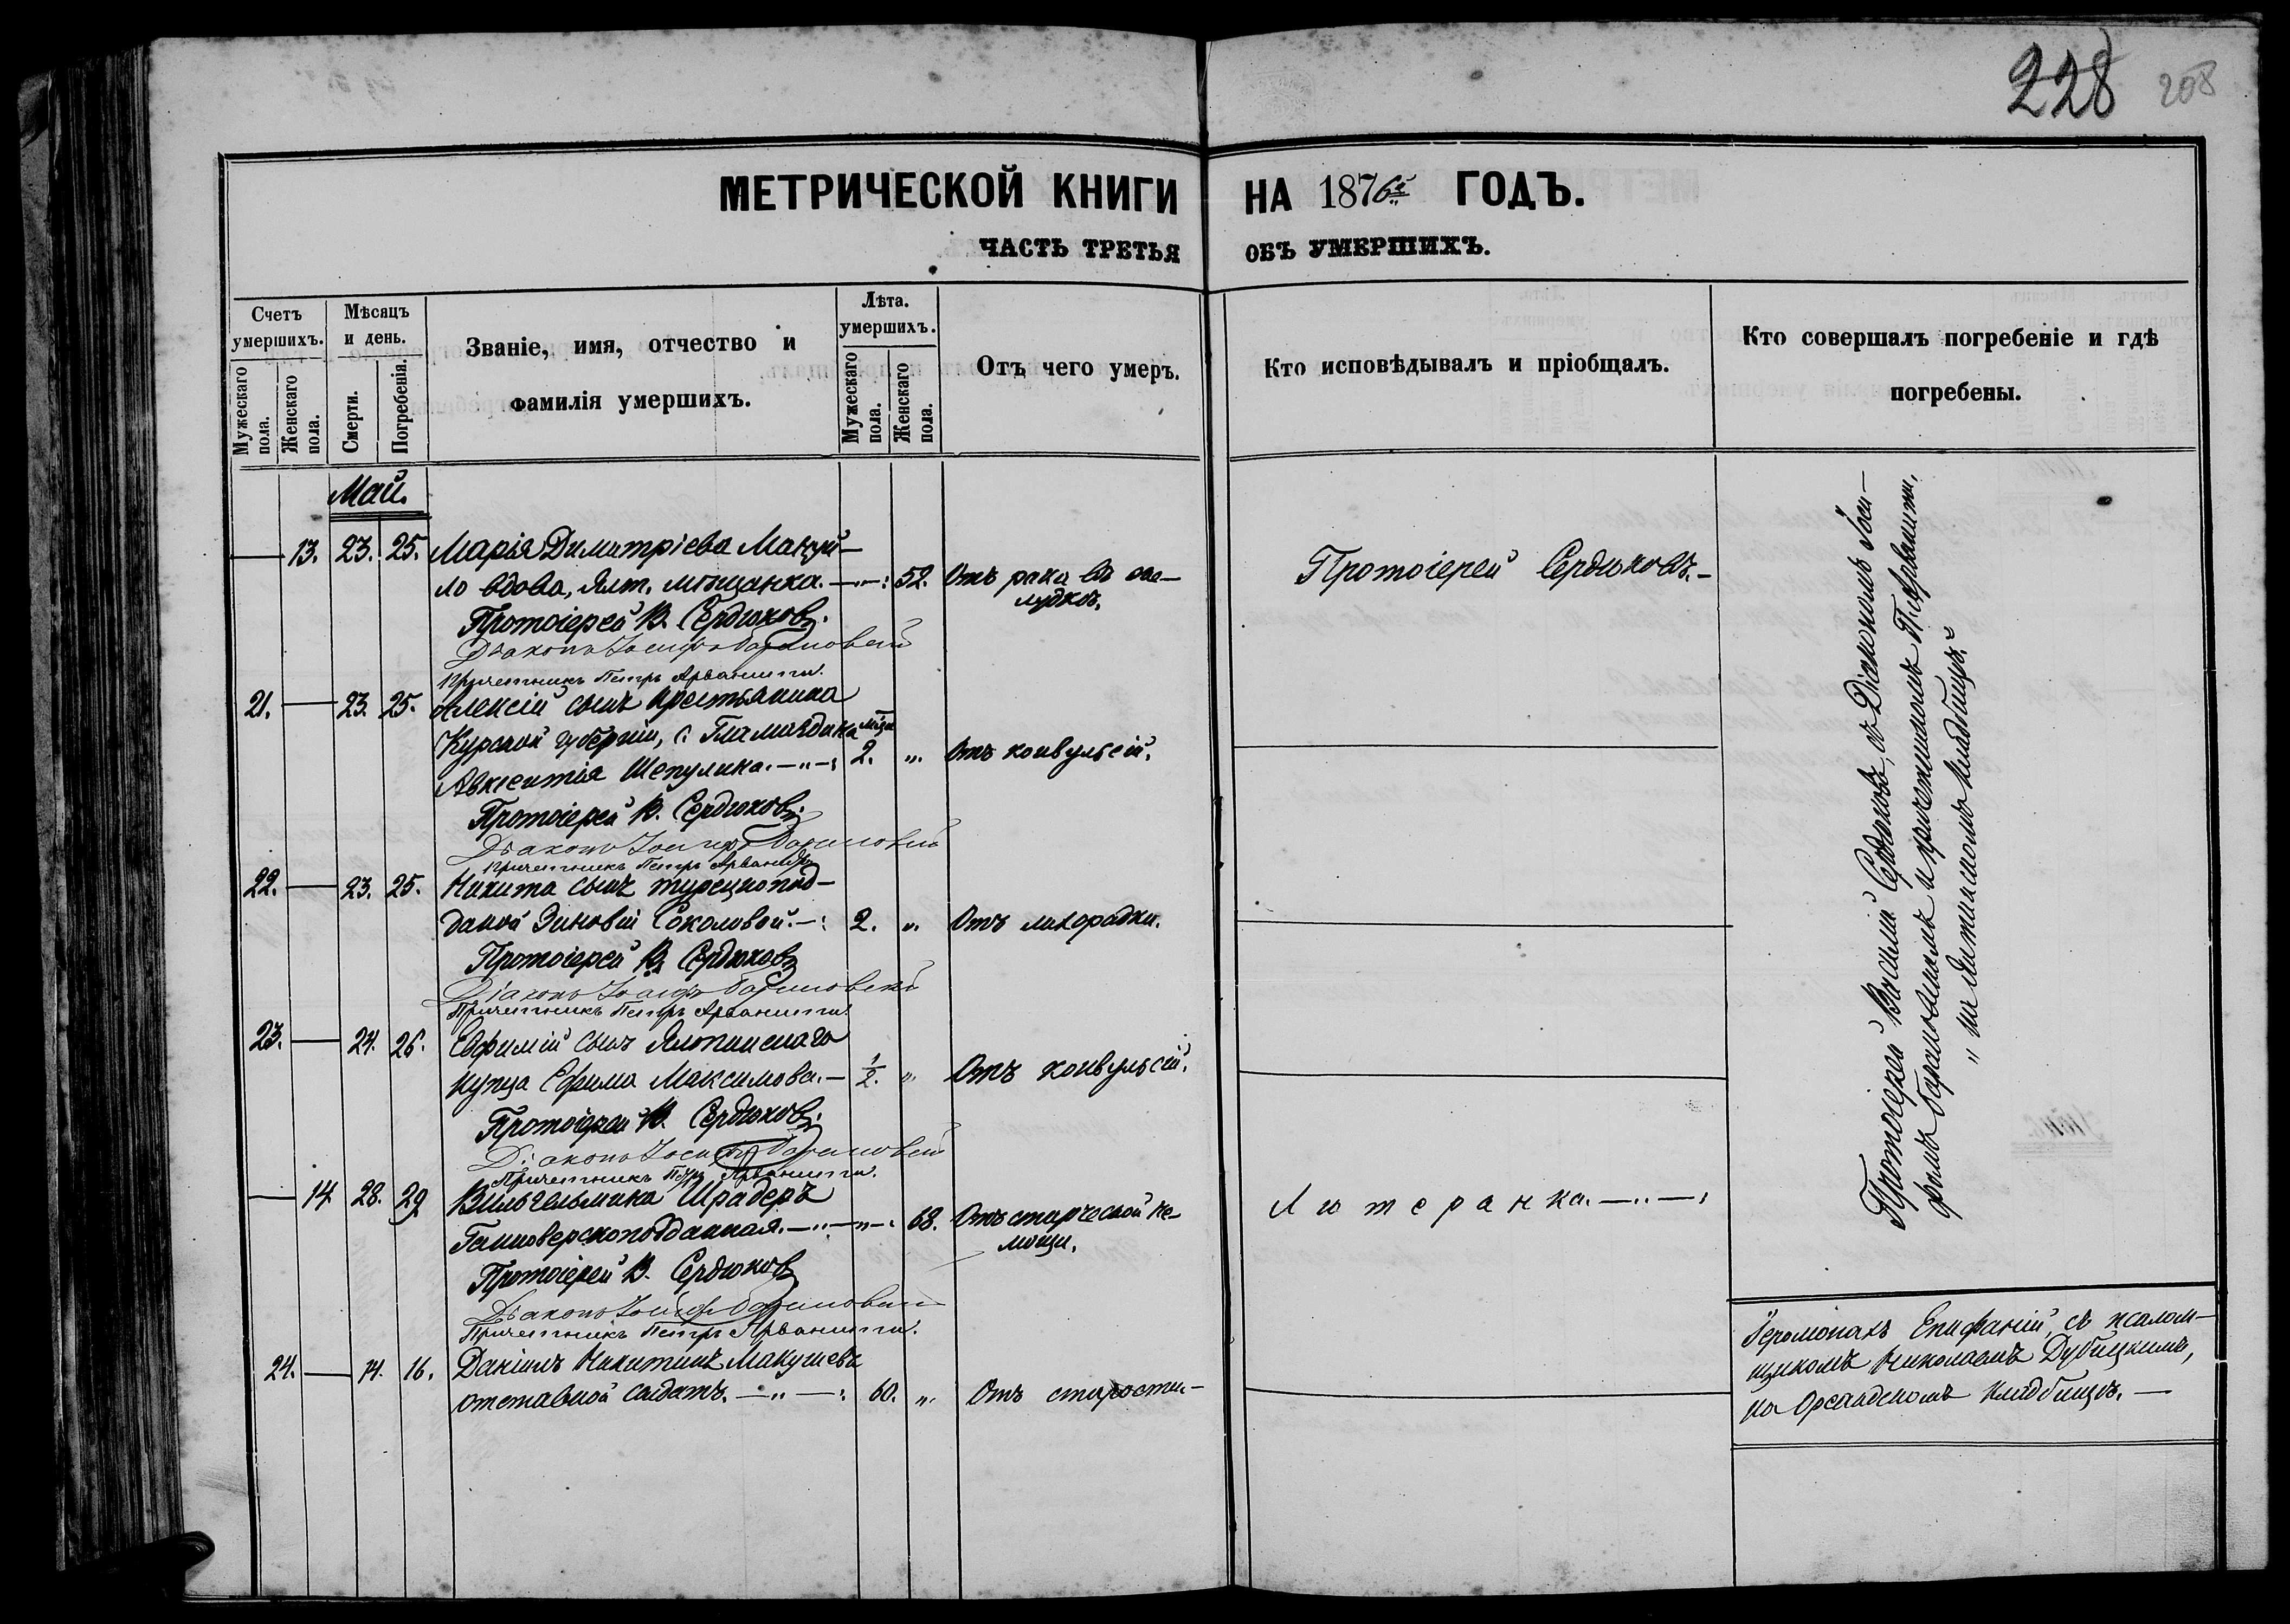 228 208
МЕТРИЧЕСКОЙ КНИГИ НА 1876й ГОДЪ.
ЧАСТЬ ТРЕТЬЯ ОБЪ УМЕРШИХЪ.
Счетъ умершихъ.
Мужескаго пола.
Женскаго пола.
Мѣсяцъ и день.
Смерти.
Погребенія.
Званіе, имя, отчество и
фамилія умершихъ.
Лѣта.
умершихъ.
Мужескаго пола.
Женскаго пола.
Отъ чего умеръ.
Кто исповѣдывалъ и пріобщалъ.
Кто совершалъ погребеніе и гдѣ
погребены.
Май.
— 13. 23. 25. Марія Димитріева Мануй-
ло вдова, Ялт. мѣщанка. 52. Отъ рака въ же-
лудкѣ.
Протоіерей Сердюковъ.
Протоіерей В. Сердюковъ.
Діаконъ Іосифъ Барановскій
Причетникъ Петръ Арванити.
21. — 23. 25. Алексій сынъ крестьянина
Курской губерніи, с.
Авксентія Шепулина. мѣся 2. „ Отъ конвульсій.
Протоіерей В. Сердюковъ.
Діаконъ Іосифъ Барановскій
Причетникъ Петръ Арванити
22. — 23. 25. Никита сынъ турецкопод-
даной Зиновіи Соколовой. 2. „ Отъ лихорадки.
Протоіерей В. Сердюковъ
Діаконъ Іосифъ Барановскій
Причетникъ Петръ Арванити.
23. — 24. 26. Евфимій сынъ Ялтинскаго
купца Ефима Максимова. — 1/2. „ Отъ конвульсій.
Протоіерей В. Сердюковъ.
Діаконъ Іосифъ Барановскій
Причетникъ Петръ Арванити.
— 14 28. 29 Вильгельмина Шрадеръ
Ганноверскоподданная. 68. Отъ старческой не-
мощи.
Лютеранка.
Протоіерей В. Сердюковъ
Діаконъ Іосифъ Барановскій
Причетникъ Петръ Арванити.
24. — 14. 16. Даніилъ Никитинъ Макушевъ
отставной солдатъ. 60. „ Отъ старости
Протоіерей Василій Сердюковъ, съ Діакономъ Іоси-
фомъ Барановскимъ и причетникомъ П. Арванити,
„ на Ялтинскомъ кладбищѣ.
Іеромонахъ Епифаній съ псалом-
щикомъ Николаемъ Дубицкимъ,
на Ореандскомъ кладбищѣ. —